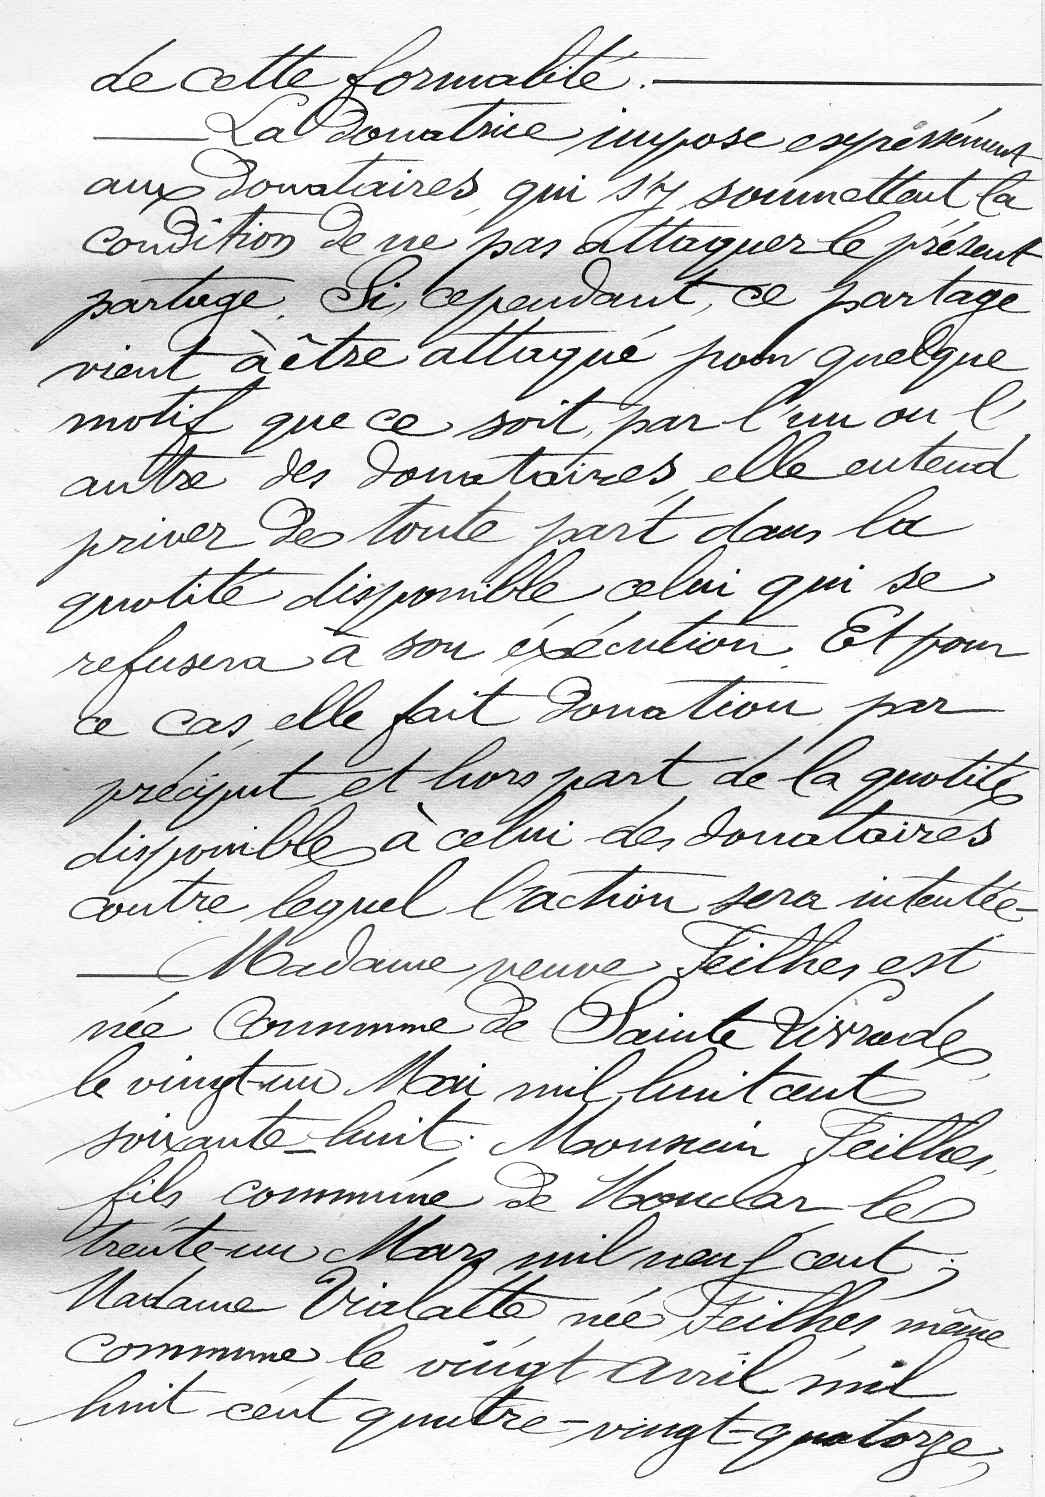 de cette formalité.
La Donatrice impose expressément
aux Donataires, qui s'y soumettent la
condition de ne pas attaquer le présent
partage. Si, cependant, ce partage
vient à être attaqué pour quelque
motif que ce soit, par l'un ou l'
autre des donataires, elle entend
priver de toute part dans la
quotité disponible celui qui se
refusera à son éxécution. Et pour
ce cas, elle fait donation par
préciput et hors part de la quotité
disponible à celui des donataires
contre lequel l'action sera intentée-
Madame veuve Feilhes est
née Commune de Sainte
le vingt-un Mai mil huit cent
soixante-huit. Monsieur Feilhes,
fils commune de le
trente-un Mars mil neuf cent;
Madame Vialatte née Feilhes même
commune le vingt avril mil
huit cent quatre-vingt-quatorze,